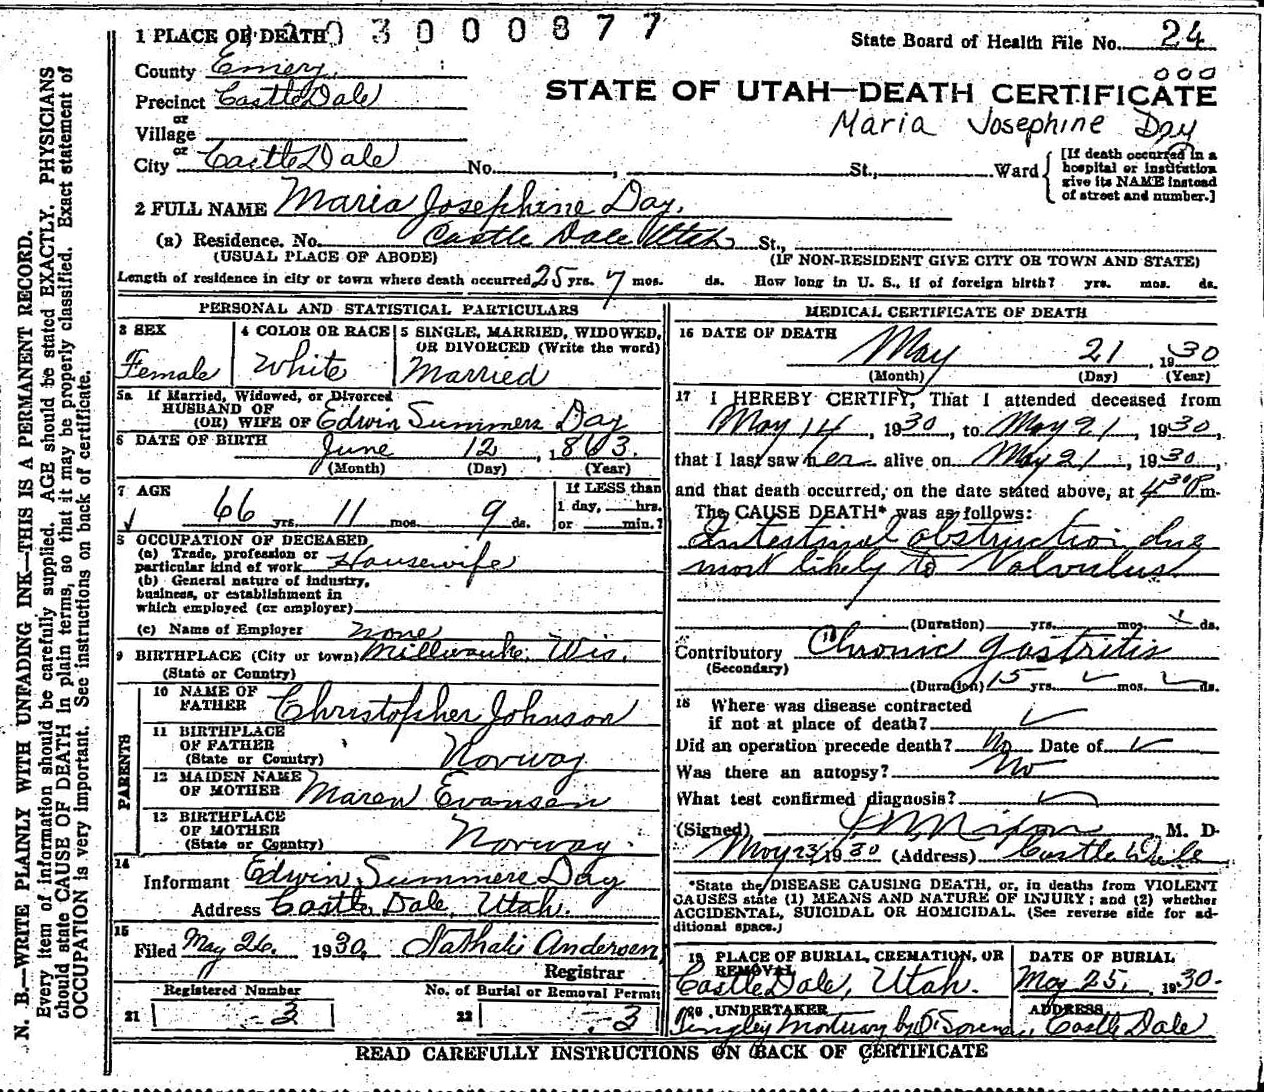 N. B.—WRITE PLAINLY WITH UNFADING INK—THIS IS A PERMANENT RECORD.
Every item of information should be carefully supplied. AGE should be stated EXACTLY. PHYSICIANS
should state CAUSE OF DEATH in plain terms, so that it may be properly classified. Exact statement of
OCCUPATION is very important. See instructions on back of certificate.
3000877
1 PLACE OF DEATH
State Board of Health File No. 24
County Emery
000
STATE OF UTAH—DEATH CERTIFICATE
Precinct Castle Dale
Maria Josephine Day
or
Village
or
City Castle Dale No. , St., Ward
[If death occurred in a
hospital or institution
give its NAME instead
of street and number.]
2 FULL NAME Maria Josephine Day.
(a) Residence. No. Castle Dale Utah St.,
(USUAL PLACE OF ABODE) (IF NON-RESIDENT GIVE CITY OR TOWN AND STATE)
Length of residence in city or town where death occurred 25 yrs. 7 mos. ds. How long in U. S., if of foreign birth? yrs. mos. ds.
PERSONAL AND STATISTICAL PARTICULARS
3 SEX
Female
4 COLOR OR RACE
White
5 SINGLE, MARRIED, WIDOWED,
OR DIVORCED (Write the word)
Married
5a If Married, Widowed, or Divorced
HUSBAND OF
(OR) WIFE OF Edwin Summers Day
6 DATE OF BIRTH June 12, 1863.
(Month) (Day) (Year)
7 AGE
66 yrs. 11 mos. 9 ds.
If LESS than
1 day, hrs.
or min.?
8 OCCUPATION OF DECEASED
(a) Trade, profession or
particular kind of work Housewife
(b) General nature of industry,
business, or establishment in
which employed (or employer)
(c) Name of Employer none
9 BIRTHPLACE (City or town) Millwauke, Wis.
(State or Country)
PARENTS
10 NAME OF
FATHER Christopher Johnson
11 BIRTHPLACE
OF FATHER
(State or Country) Norway
12 MAIDEN NAME
OF MOTHER Maren Evanson
13 BIRTHPLACE
OF MOTHER
(State or Country) Norway.
14
Informant Edwin Summers Day
Address Castle Dale, Utah.
15
Filed May 26, 1930, Nathalie Andersen
Registrar
Registered Number
21 -3
No. of Burial or Removal Permit
22 -3
MEDICAL CERTIFICATE OF DEATH
16 DATE OF DEATH
May 21, 1930
(Month) (Day) (Year)
17 I HEREBY CERTIFY, That I attended deceased from
May 14, 1930, to May 21, 1930,
that I last saw her alive on May 21, 1930,
and that death occurred, on the date stated above, at 4:30 P m.
The CAUSE DEATH* was as follows:
Intestinal obstruction due
most likely to Valvulus
(Duration) yrs. mos. ds.
Contributory Chronic gastritis
(Secondary)
(Duration) 15 yrs. mos. ds.
18 Where was disease contracted
if not at place of death?
Did an operation precede death? No Date of
Was there an autopsy? No
What test confirmed diagnosis?
(Signed) Nixon, M. D.
May 23, 1930 (Address) Castle Dale
*State the DISEASE CAUSING DEATH, or, in deaths from VIOLENT
CAUSES state (1) MEANS AND NATURE OF INJURY; and (2) whether
ACCIDENTAL, SUICIDAL OR HOMICIDAL. (See reverse side for ad-
ditional space.)
19 PLACE OF BURIAL, CREMATION, OR
REMOVAL
Castle Dale, Utah.
DATE OF BURIAL
May 25, 1930.
20 UNDERTAKER
Mortuary by
ADDRESS
Castle Dale
READ CAREFULLY INSTRUCTIONS ON BACK OF CERTIFICATE